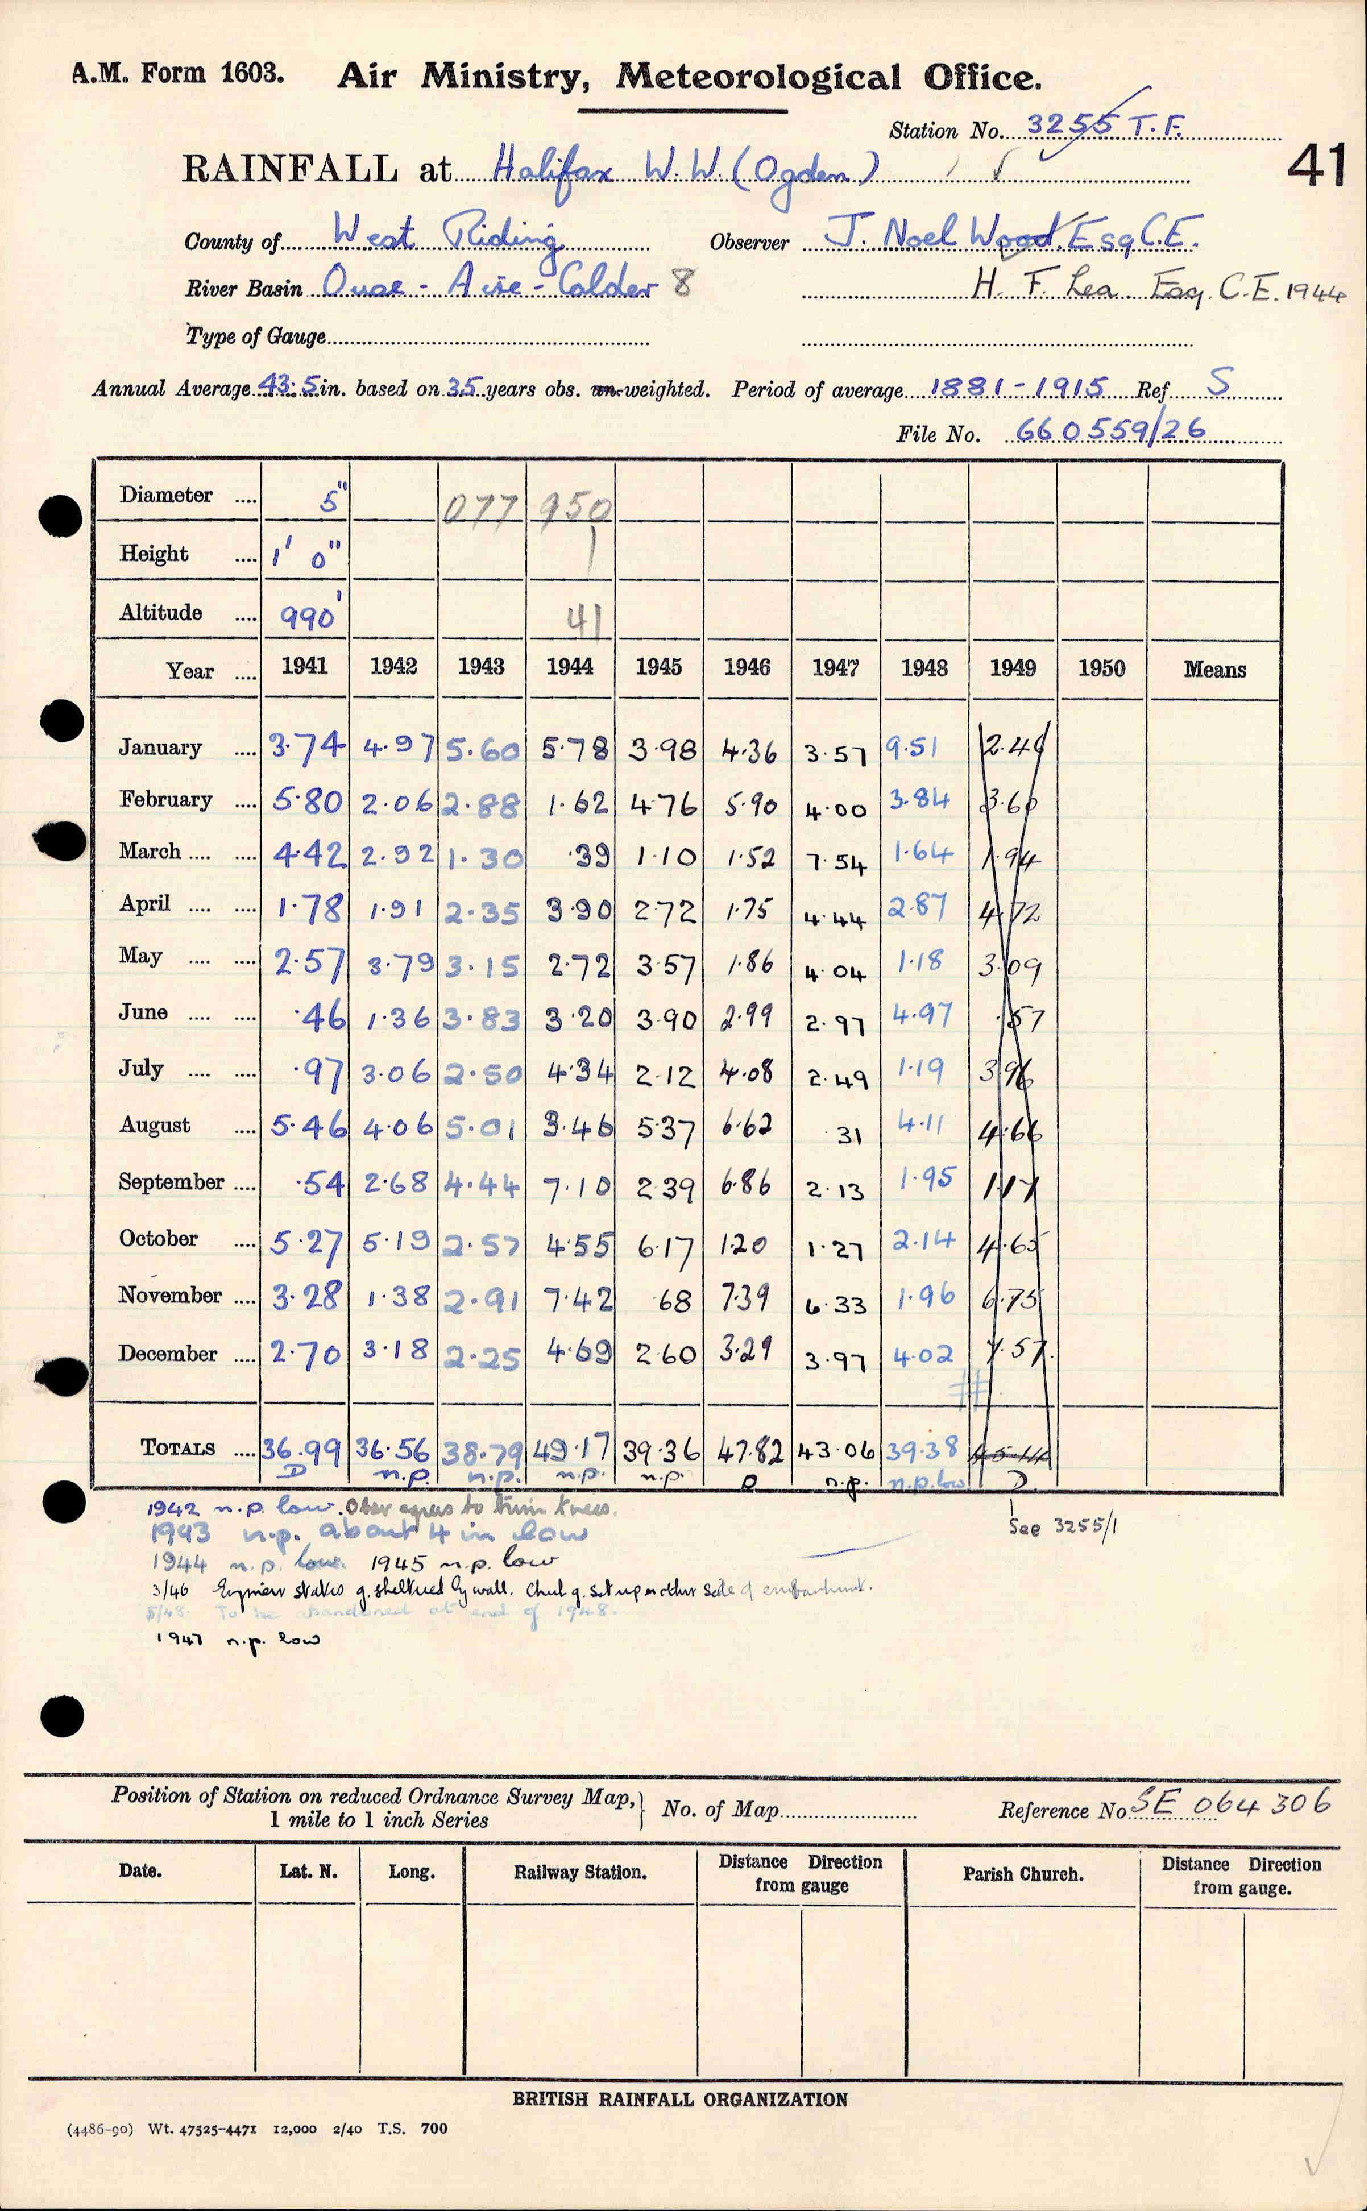 A.M. Form 1603. Air Ministry, Meteorological Office.
Station No. 3255 T.F.
RAINFALL at Halifax W.W. (Ogden)
41
County of West Riding Observer J. Noel Wood. Esq C.E.
River Basin Ouse - Aire - Calder 8 H. F. Lea. Esq. C.E. 1944
Type of Gauge
Annual Average 43.5 in. based on 35 years obs. un-weighted. Period of average 1881-1915 Ref S
File No. 660559/26
Diameter .... 5" 077 950
Height .... 1' 0" 1
Altitude .... 990' 41
Year .... 1941 1942 1943 1944 1945 1946 1947 1948 1949 1950 Means
January .... 3.74 4.97 5.60 5.78 3.98 4.36 3.57 9.51 2.46
February .... 5.80 2.06 2.88 1.62 4.76 5.90 4.00 3.84 3.60
March .... .... 4.42 2.92 1.30 .39 1.10 1.52 7.54 1.64 1.94
April .... .... 1.78 1.91 2.35 3.90 2.72 1.75 4.44 2.87 4.72
May .... .... 2.57 3.79 3.15 2.72 3.57 1.86 4.04 1.18 3.09
June .... .... .46 1.36 3.83 3.20 3.90 2.99 2.97 4.97 .57
July .... .... .97 3.06 2.50 4.34 2.12 4.08 2.49 1.19 3.96
August .... 5.46 4.06 5.01 3.46 5.37 6.62 31 4.11 4.66
September .... .54 2.68 4.44 7.10 2.39 6.86 2.13 1.95 1.17
October .... 5.27 5.19 2.57 4.55 6.17 1.20 1.27 2.14 4.65
November .... 3.28 1.38 2.91 7.42 .68 7.39 6.33 1.96 6.75
December .... 2.70 3.18 2.25 4.69 2.60 3.29 3.97 4.02 7.57
#
TOTALS .... 36.99 36.56 38.79 49.17 39.36 47.82 43.06 39.38 45.14
D n.p. n.p. n.p. n.p. D n.p. n.p. low D.
1942 n.p low. Obsr agrees to trim trees.
See 3255/1
1943 n.p. about 4 in low
1944 n.p. low. 1945 n.p. low
3/46 Engineer states g. sheltered by wall. Chck g. set up on other side of embankment.
5/48 To be abandoned at end of 1948.
1947 n.p. low
Position of Station on reduced Ordnance Survey Map, 1 mile to 1 inch Series } No. of Map Reference No SE 064 306
Date. Lat. N. Long. Railway Station. Distance Direction from gauge Parish Church. Distance Direction from gauge.
BRITISH RAINFALL ORGANIZATION
(4486-90) Wt. 47525-4471 12,000 2/40 T.S. 700